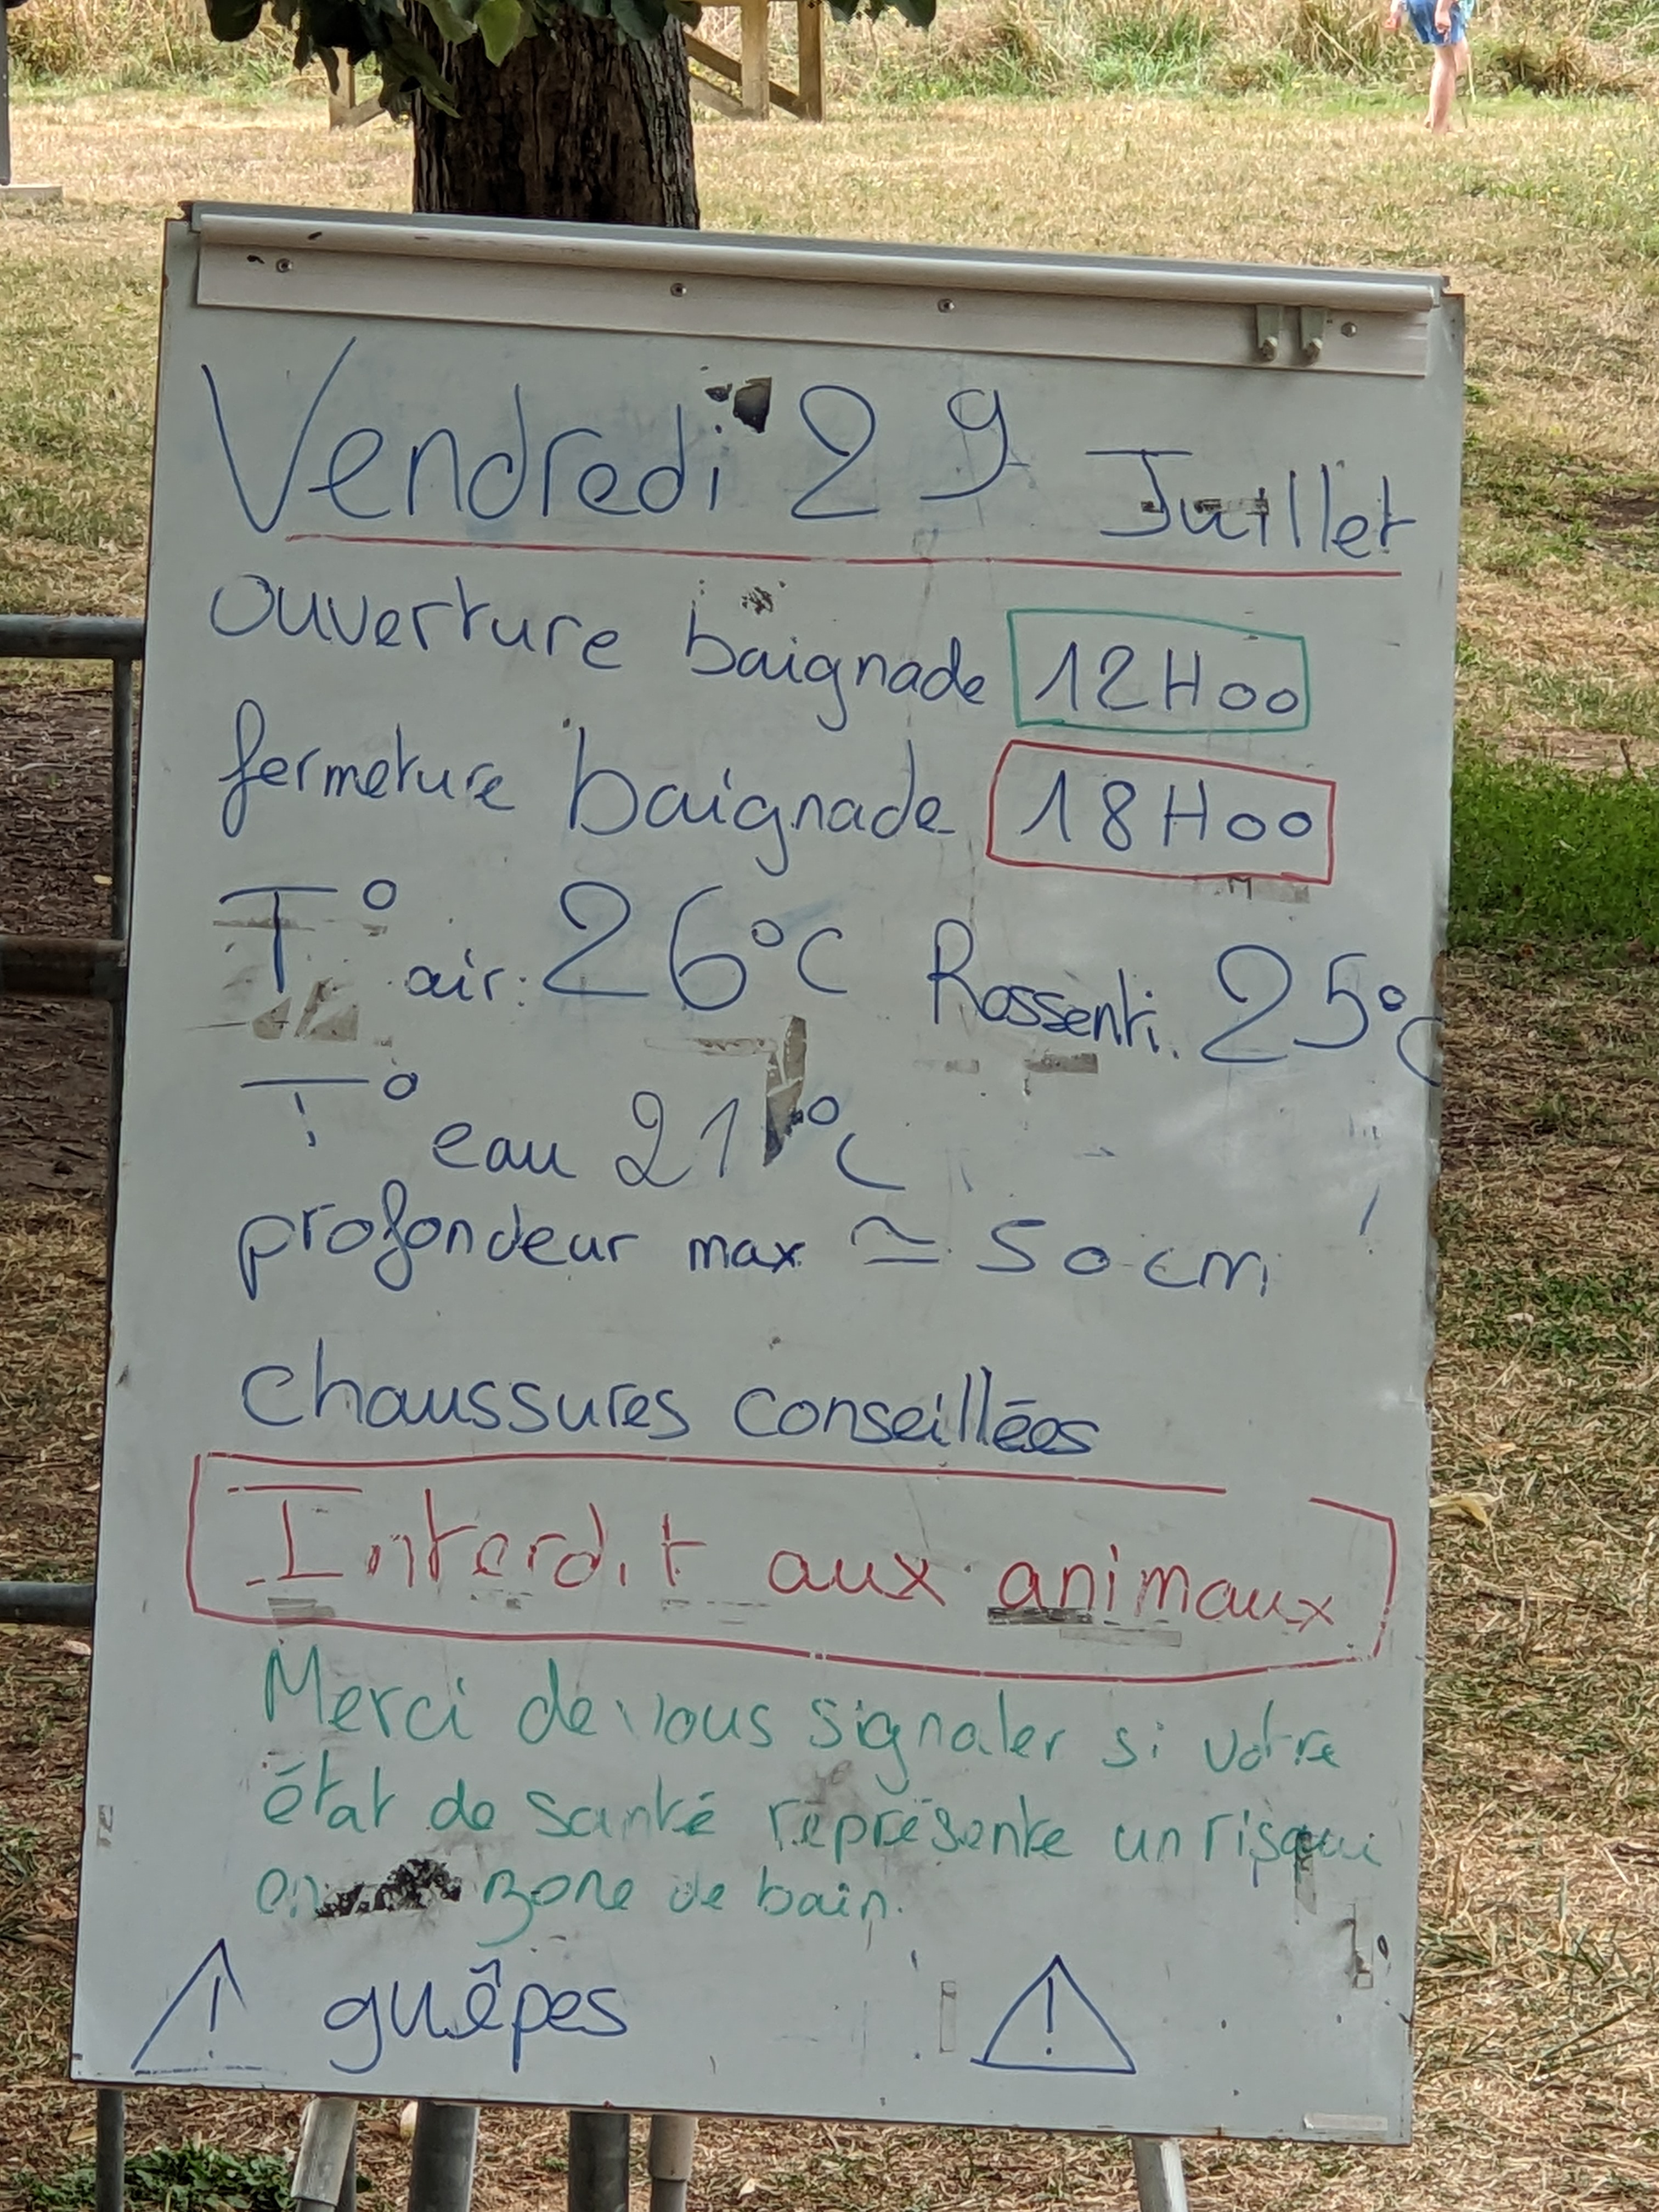 Vendredi 29 Juillet
ouverture baignade 12H00
fermeture baignade 18H00
T° air: 26°C Ressenti. 25°C
T° eau 21°C
profondeur max ≃ 50cm
chaussures conseillées
Interdit aux animaux
Merci de vous signaler si votre
état de santé représente un risque
en zone de bain.
⚠ guêpes ⚠